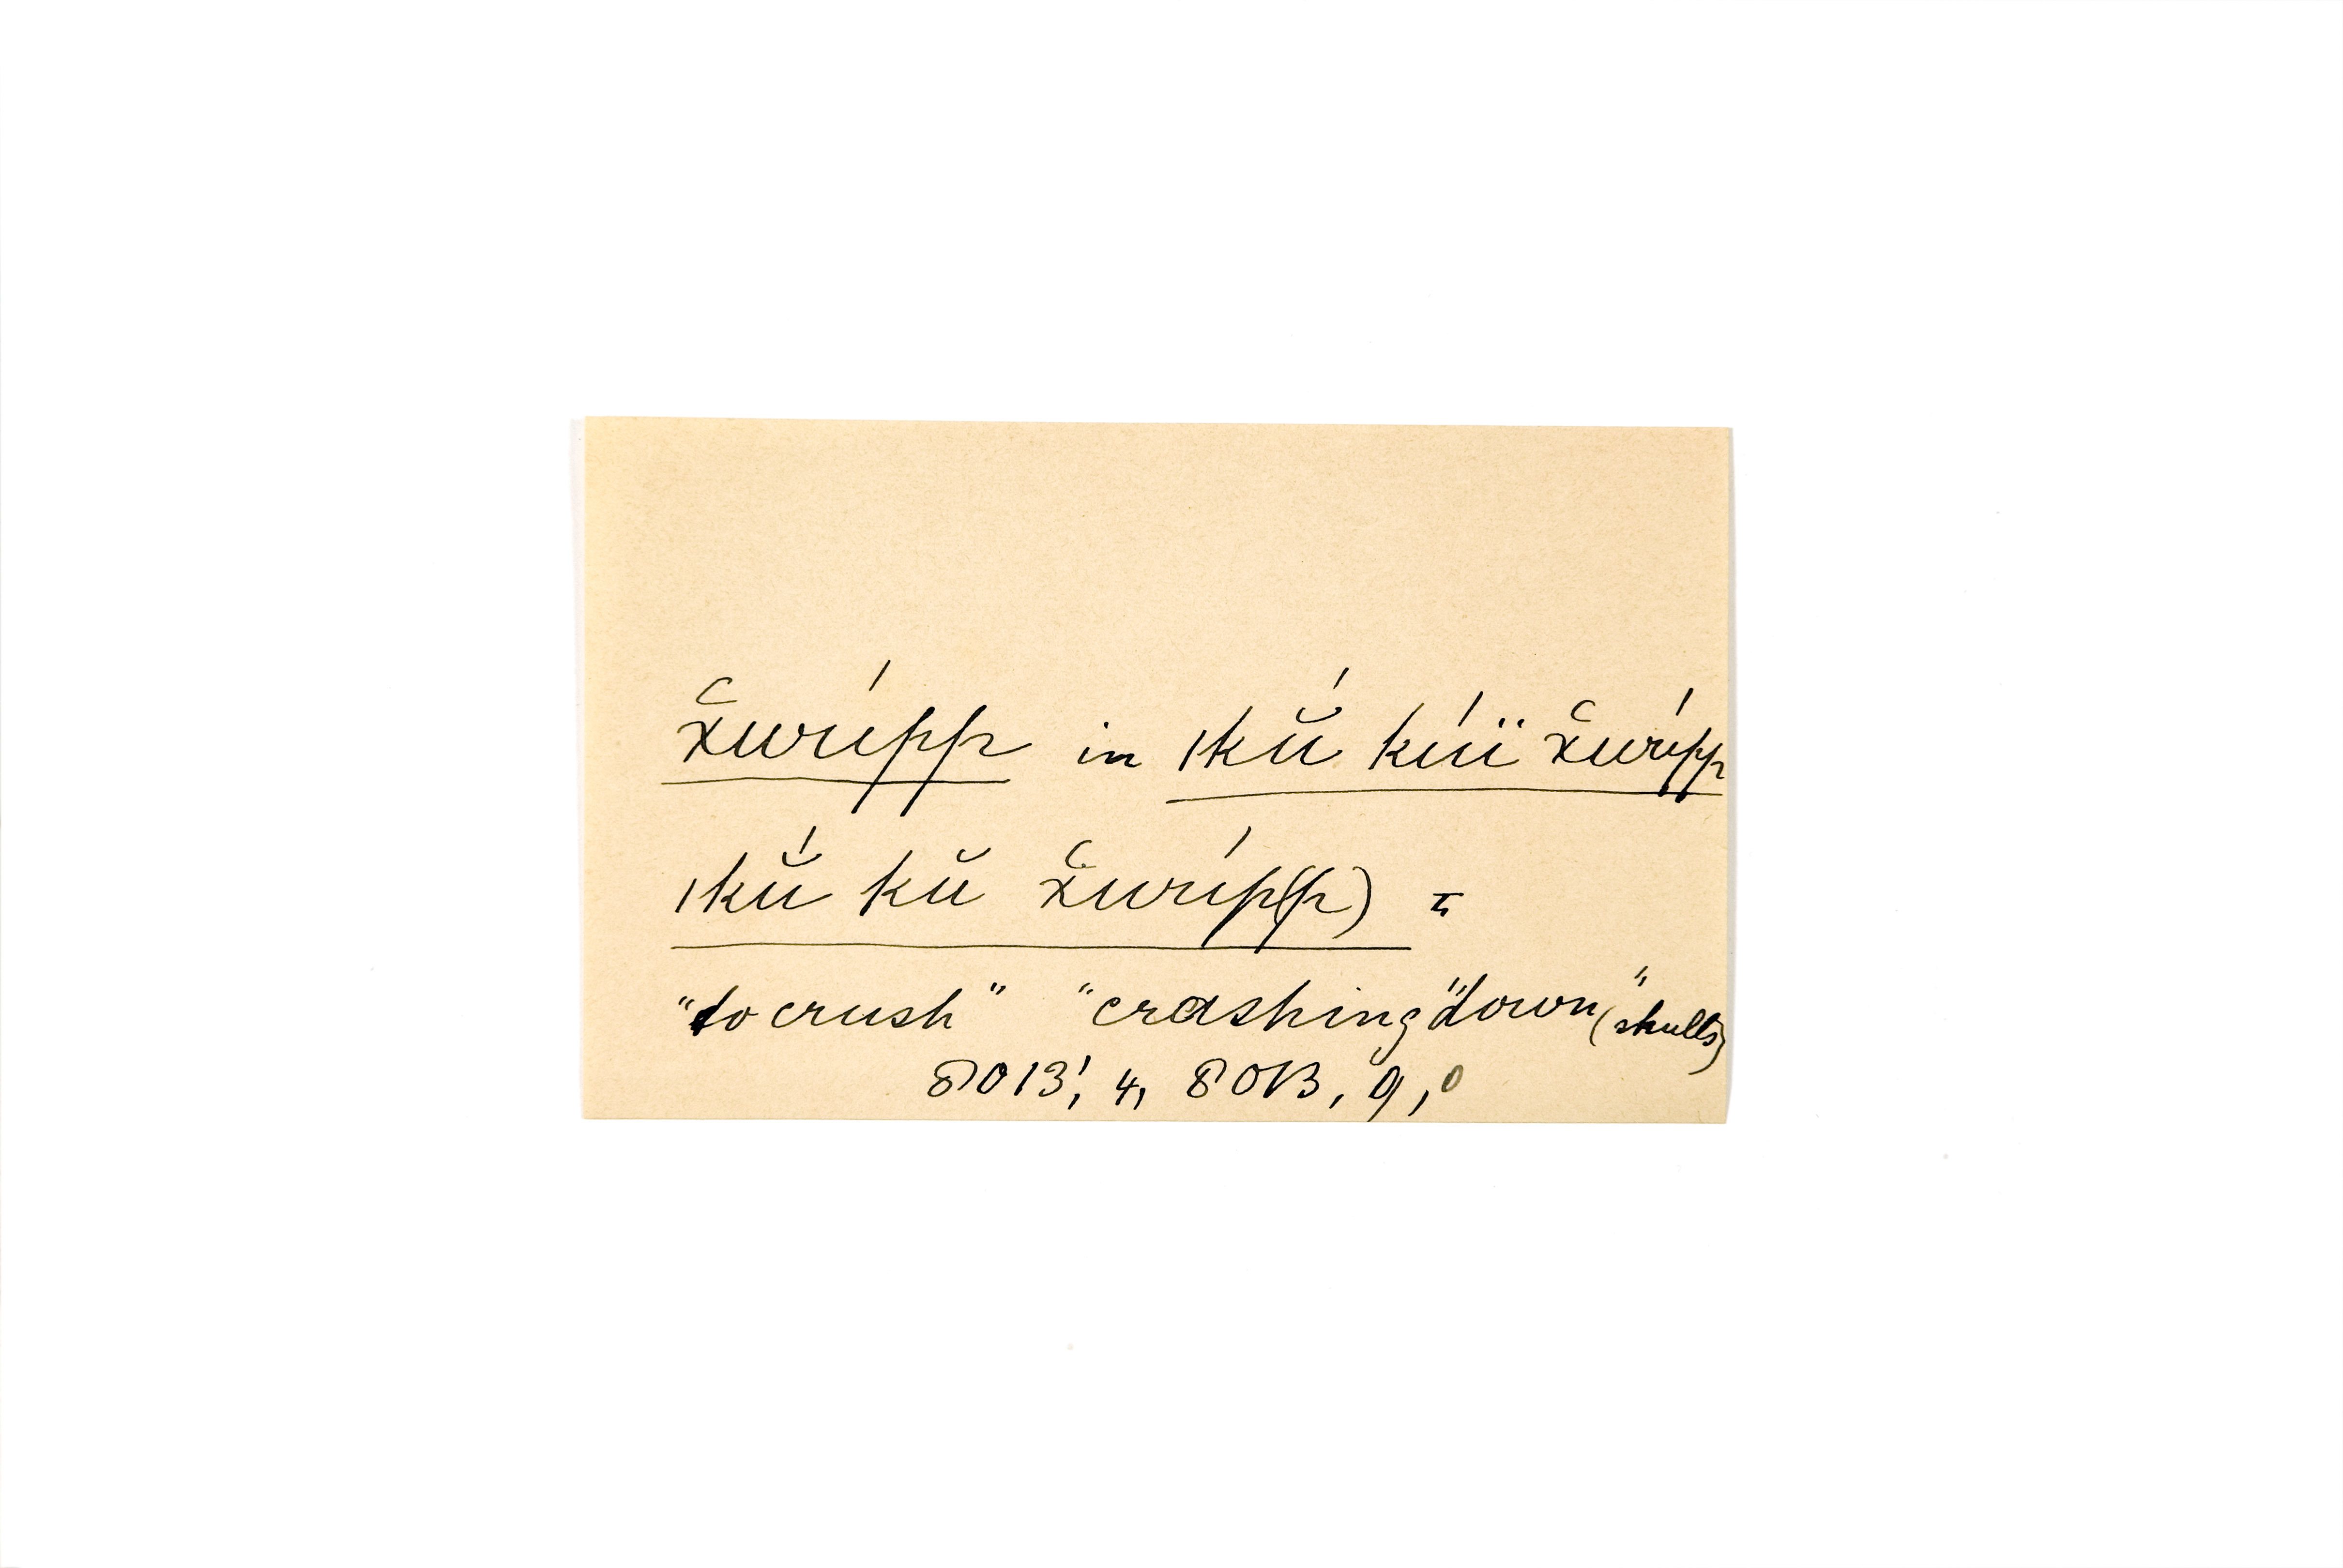 x̌urípp in ıkŭ́ kúï x̌urípp
ıkŭ́ kŭ x̌uríp(p) =
"to crush" "crashing" "down" (skulls)
8013', 4, 8013, 9,